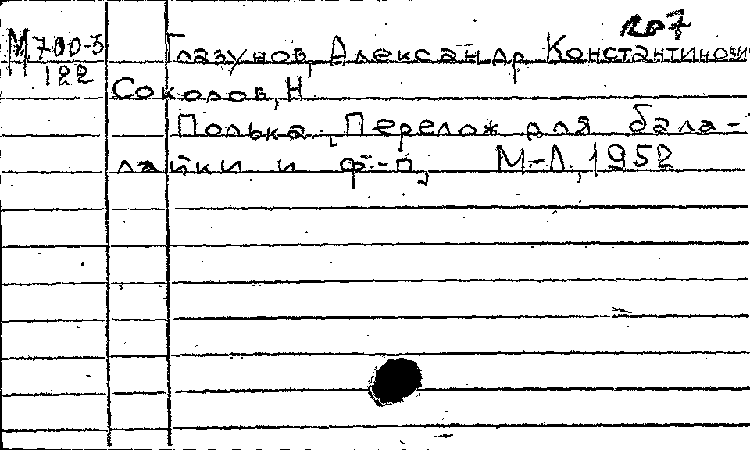 207
М 700-3 Глазунов, Александр Константинович
122
Соколов, Н
Полька. Перелож для бала-
лайки и ф-п, М-Л, 1952